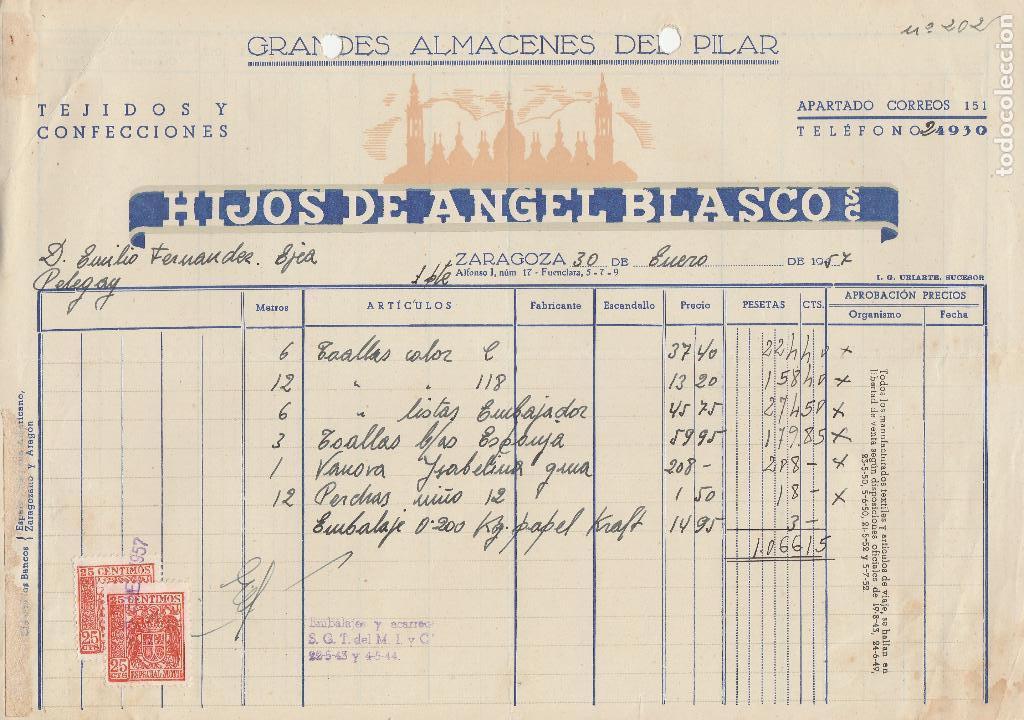 nº 202
GRANDES ALMACENES DEL PILAR
TEJIDOS Y
CONFECCIONES
APARTADO CORREOS 151
TELÉFONO 24930
HIJOS DE ANGEL BLASCO S C
D. Emilio Fernandez. Ejea
ZARAGOZA 30 DE Enero DE 1957
Pelegay
1 pte
Alfonso I, núm 17 - Fuenclara, 5-7-9
I. G. URIARTE, SUCESOR
Metros ARTÍCULOS Fabricante Escandallo Precio PESETAS CTS. APROBACIÓN PRECIOS
Organismo Fecha
6 Toallas color C 37 40 224 40 x
12 " " 118 13 20 158 40 x
6 " listas Embajador 45 75 274 50 x
3 Toallas b/as Esponja 59 95 179 85 x
1 Vanova Isabelina gma 208 - 208 - x
12 Perchas niño 12 1 50 18 - x
Embalaje 0'200 Kg. papel Kraft 14 95 3 -
1.066 15
Todos los manufacturados textiles y artículos de viaje, se hallan en
libertad de venta según disposiciones oficiales de 19-8-43, 24-6-49,
23-5-50, 5-6-50, 21-5-52 y 5-7-52
Bancos
Zaragozano y Aragón
1957
25 CENTIMOS
25
25 CENTIMOS
25 CTS
25 CTS
ESPECIAL MOVIL
Embalajes y acarreo
S. G. T. del M. I. y C
22-5-43 y 4-5-44.
todocoleccion